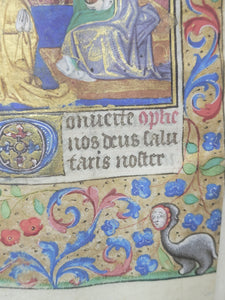 Conuerte
nos deus salu
taris noster